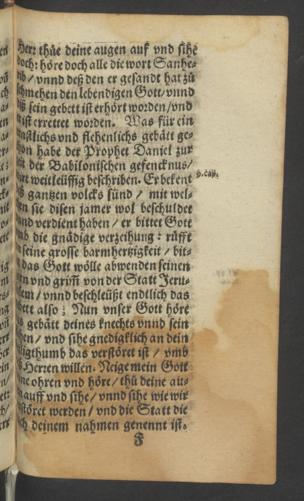 Herr thüe deine augen auf vnd sihe
doch: höre doch alle die wort Sanhe-
/ vnnd deß den er gesandt hat zů
schmehen den lebendigen Gott/ vnnd
sein gebett ist erhört worden/ vnd
ist errettet worden. Was für ein
vnd flehenlichs gebätt ge-
habe der Prophet Daniel zur
der Babilonischen gefencknus/
weitleüffig beschriben. Er bekent
9. cap.
gantzen volcks sünd / mit wel-
sie disen jamer wol beschuldet
vnd verdient haben / er bittet Gott
die gnädige verzeihung: rüfft
seine grosse barmhertzigkeit / bit-
das Gott wölle abwenden seinen
vnd grim̃ von der Statt Jeru-
/ vnnd beschleüßt endtlich das
also: Nun vnser Gott höre
gebätt deines knechts vnnd sein
/ vnd sihe gnedigklich an dein
das verstöret ist / vmb
Herren willen. Neige mein Gott
ohren vnd hör / thü deine au-
auff vnd sihe / vnnd sihe wie wir
werden / vnd die Statt die
deinem nahmen genennt ist.
F